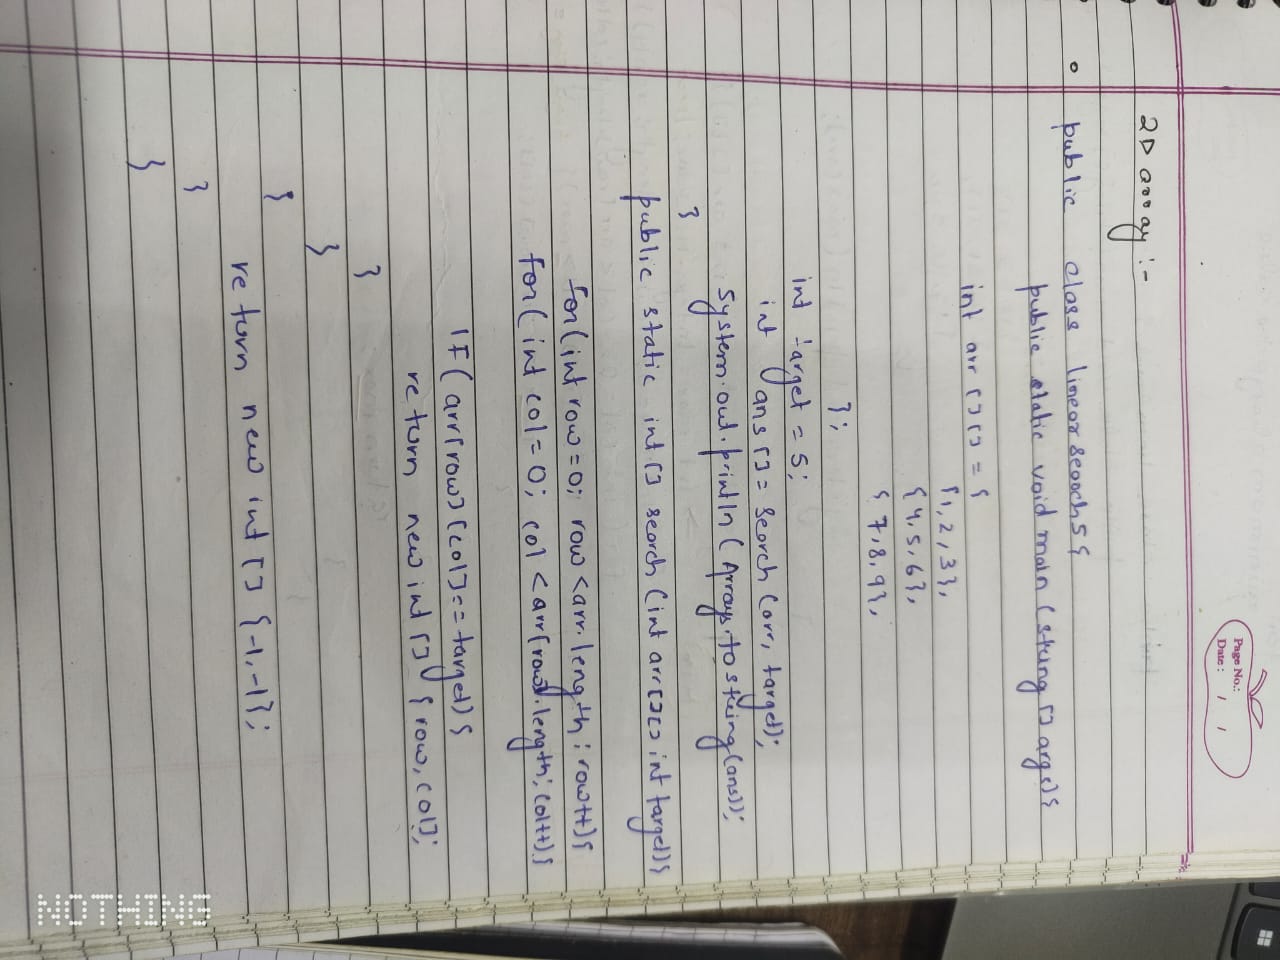 Page No.:
Date: / /
2D array :-
public class linearsearch5{
public static void main (string [] args){
int arr [][] = {
{1,2,3},
{4,5,6},
{7,8,9},
};
int target = 5;
int ans [] = search (arr, target);
System.out.println (Arrays.to string (ans));
}
public static int [] search (int arr[][] int target){
for (int row=0; row <arr.length; row++){
for (int col=0; col <arr[row].length; col++){
IF (arr[row][col]==target){
return new int [] {row, col};
}
}
}
return new int [] {-1,-1};
}
}
NOTHING